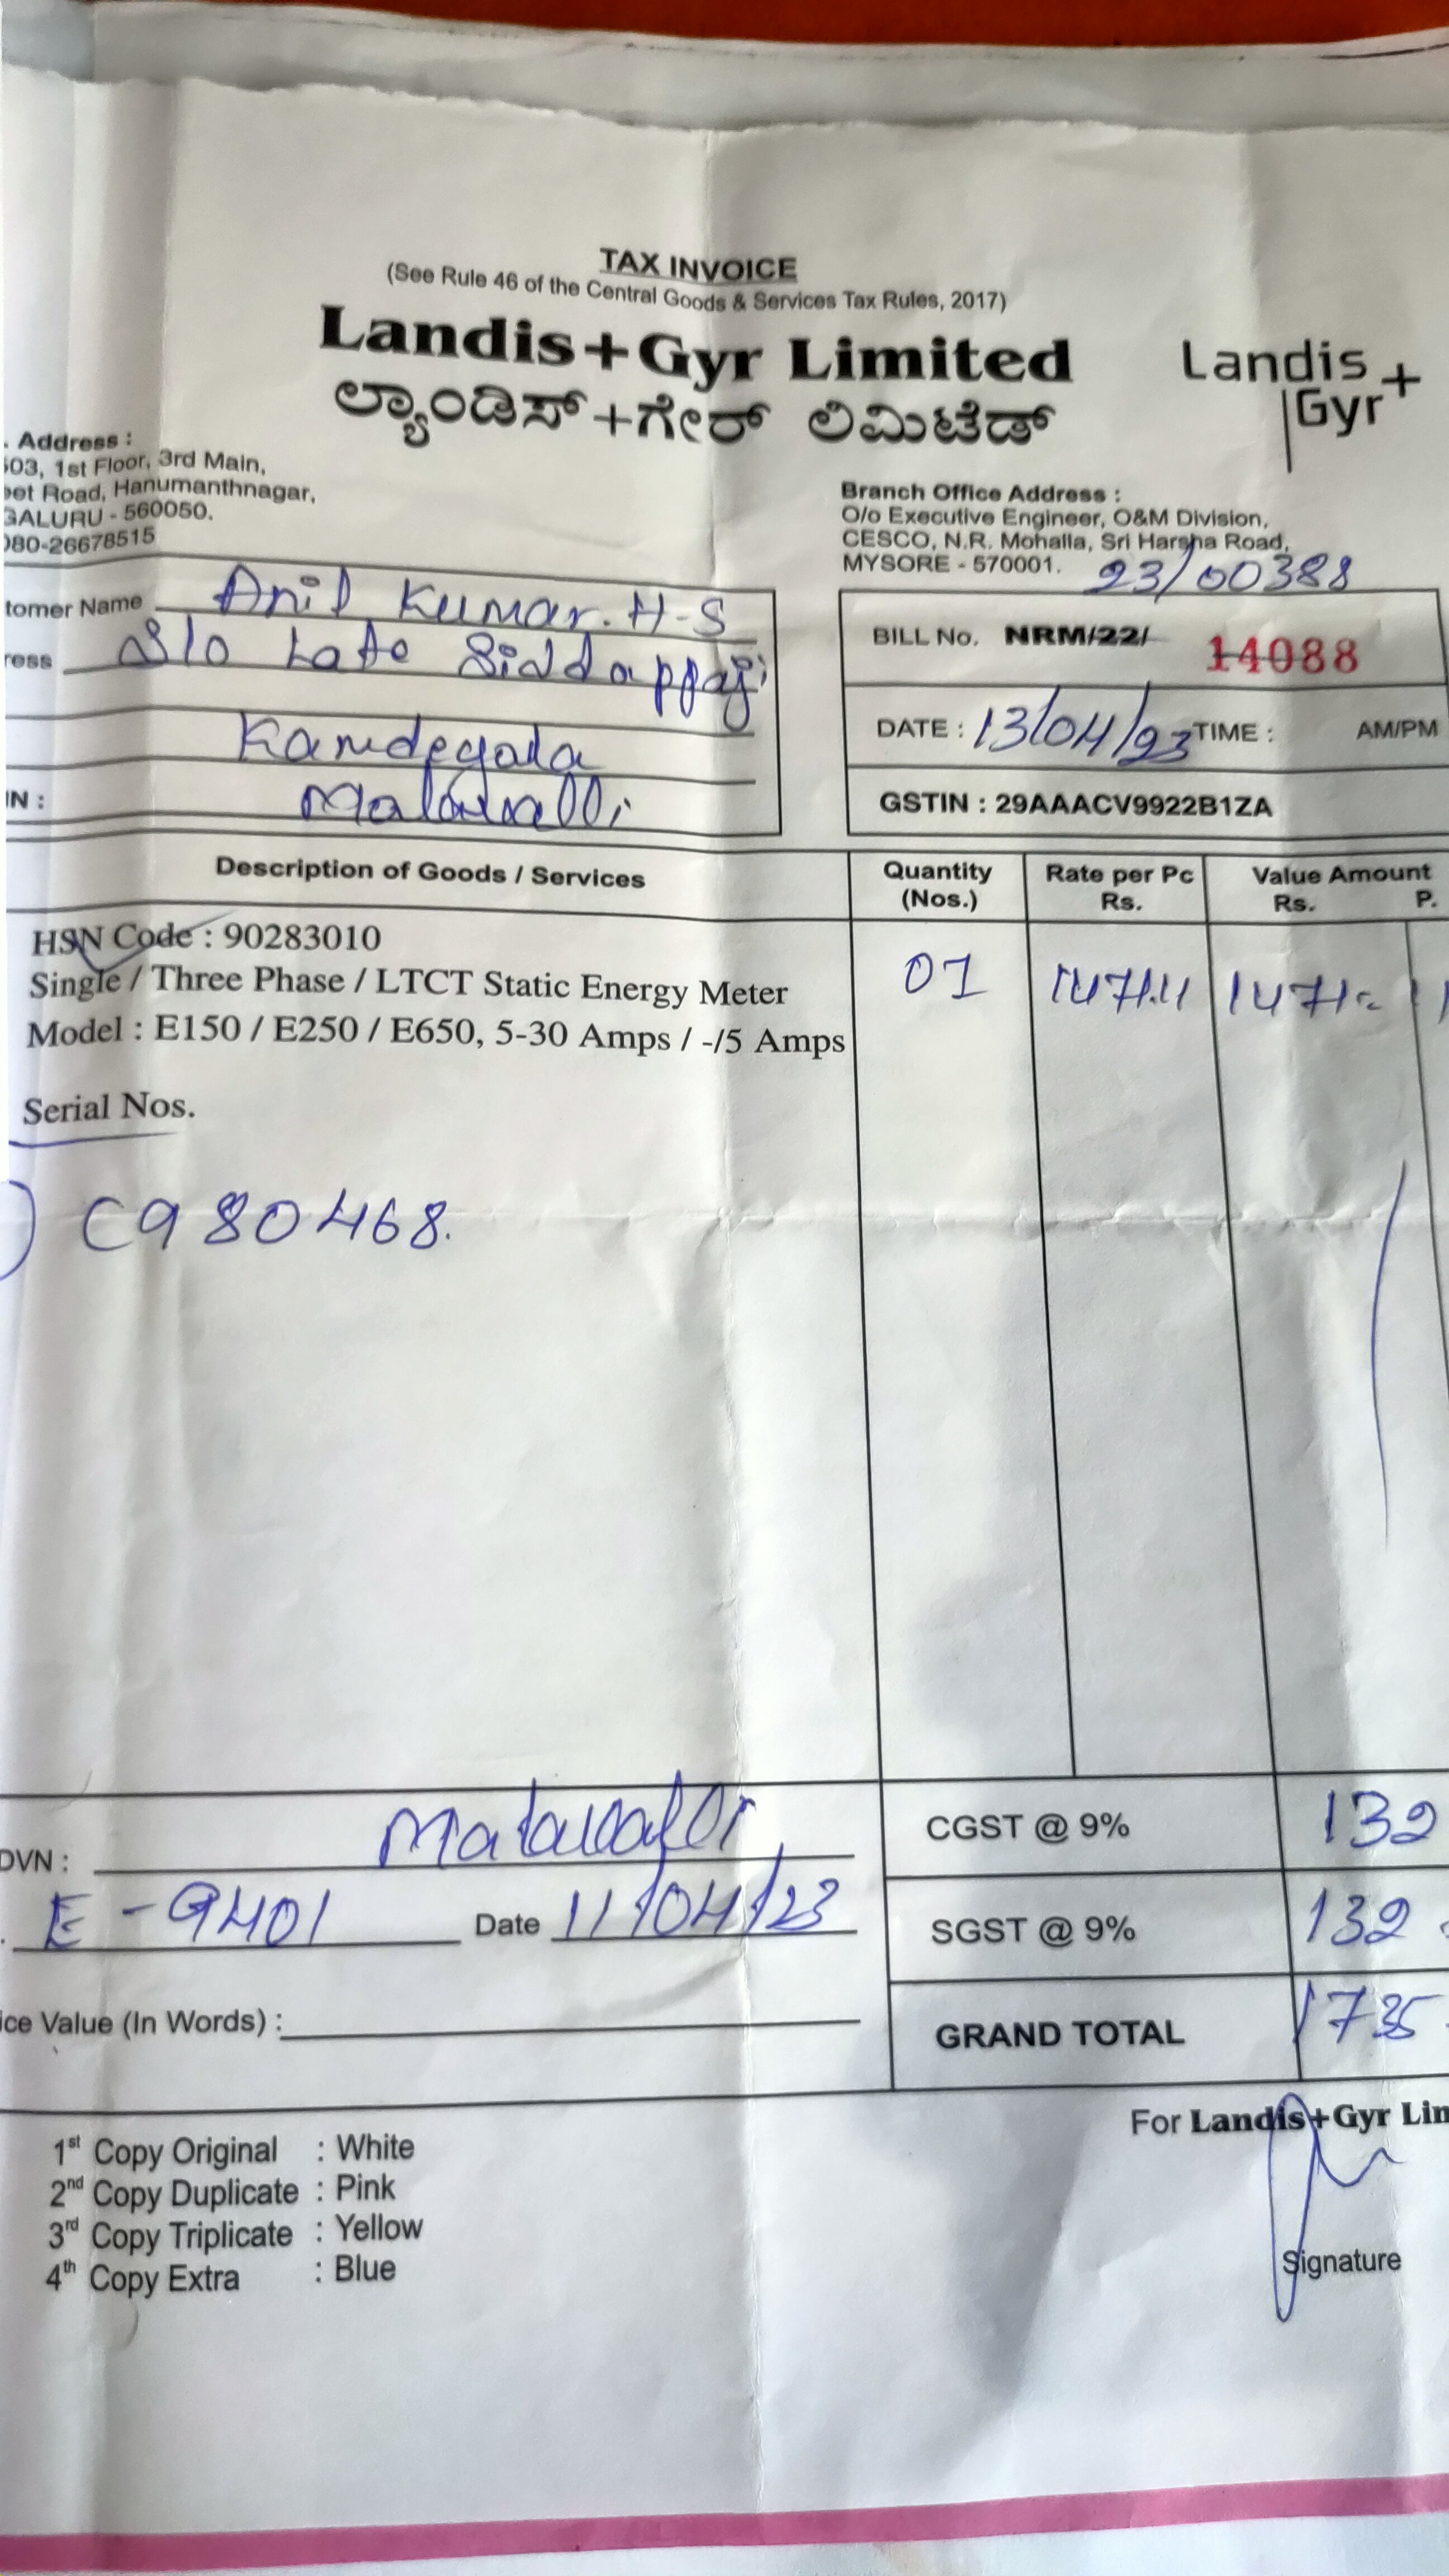 TAX INVOICE
(See Rule 46 of the Central Goods & Services Tax Rules, 2017)
Landis+Gyr Limited
ಲ್ಯಾಂಡಿಸ್+ಗೇರ್ ಲಿಮಿಟೆಡ್
Landis
Gyr+
. Address :
503, 1st Floor, 3rd Main,
Road, Hanumanthnagar,
GALURU - 560050.
080-26678515
Branch Office Address :
O/o Executive Engineer, O&M Division,
CESCO, N.R. Mohalla, Sri Harsha Road,
MYSORE - 570001.
23/00388
tomer Name Anil Kumar.H-S
ress S/o Late Siddappaji
Kandegala
IN : Malavalli
BILL No. NRM/22/ 14088
DATE : 13/04/23 TIME : AM/PM
GSTIN : 29AAACV9922B1ZA
Description of Goods / Services
Quantity (Nos.)
Rate per Pc Rs.
Value Amount Rs. P.
HSN Code : 90283010
Single / Three Phase / LTCT Static Energy Meter
Model : E150 / E250 / E650, 5-30 Amps / -/5 Amps
01 1471.11 1471=11
Serial Nos.
) C980468.
DVN : Malavalli
E-9401 Date 11/04/23
CGST @ 9% 132
SGST @ 9% 132
ice Value (In Words) :
GRAND TOTAL 1735
For Landis+Gyr Lim
1st Copy Original : White
2nd Copy Duplicate : Pink
3rd Copy Triplicate : Yellow
4th Copy Extra : Blue
Signature